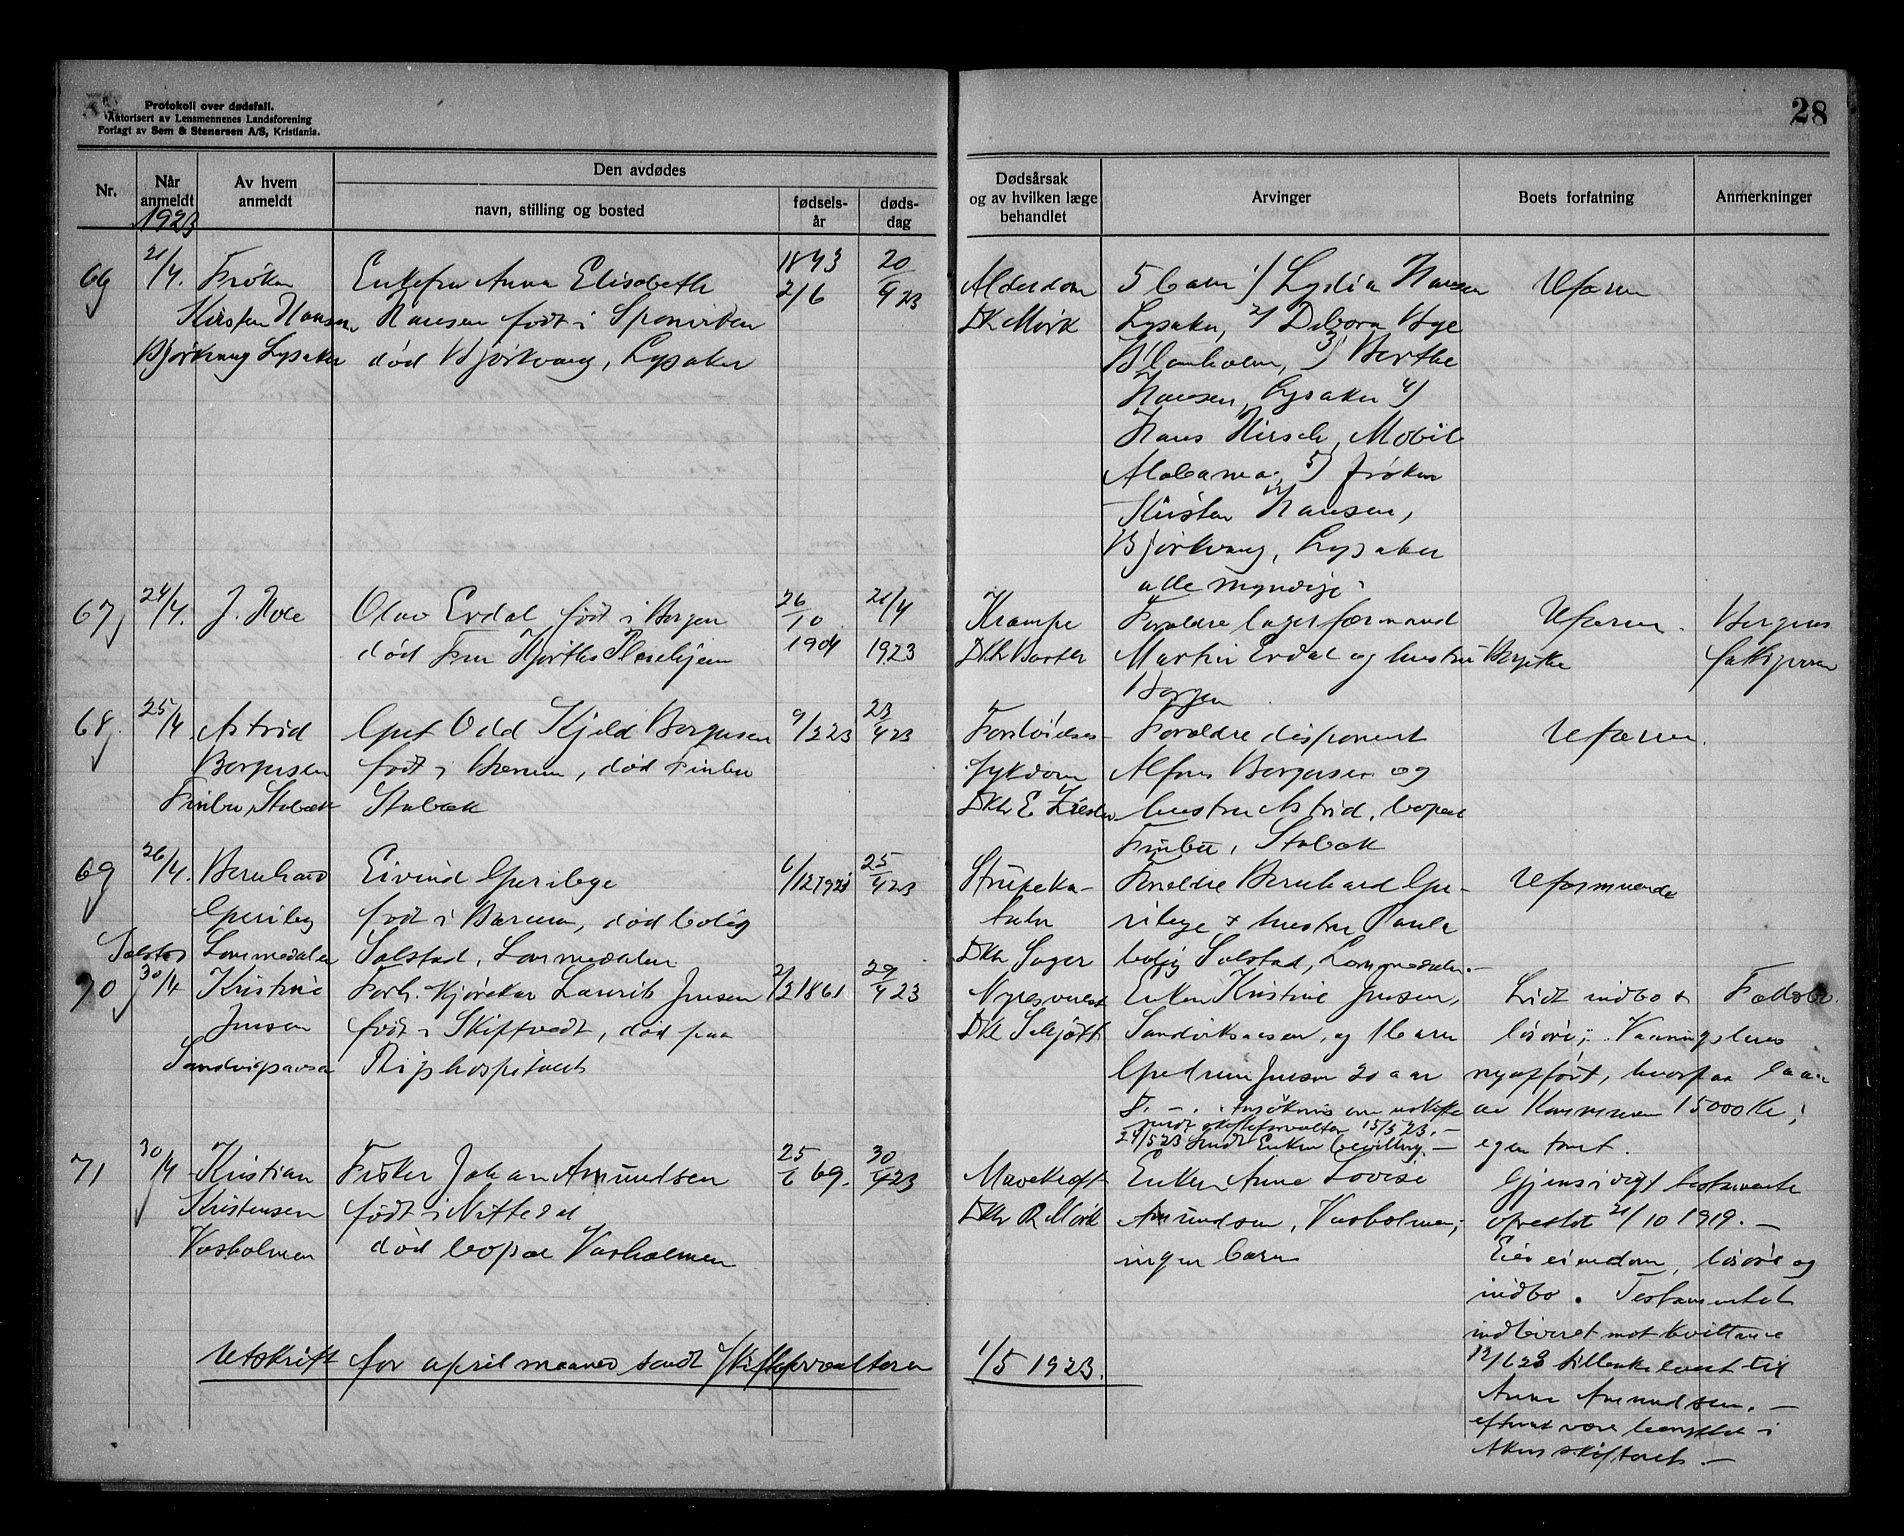 Protokoll over dødsfall.
Autorisert av Lensmennenes Landsforening
Forlagt av Sem & Stenersen A/S, Kristiania.
28
Nr.
Når anmeldt
1923
Av hvem anmeldt
Den avdødes
navn, stilling og bosted
fødsels-år
døds-dag
Dødsårsak og av hvilken læge behandlet
Arvinger
Boets forfatning
Anmerkninger
66
21/4.
Frøken
Kirsten Hansen
Bjørkvang Lysaker
Enkefru Anna Elisabeth
Hansen født i
død Bjørkvang, Lysaker
1843
2/6
20/4 23
Alderdom
Dr Mörk
5 barn 1) Lydia Hansen
Lysaker, 2) Debora Bye
3) Berthe
Hansen, Lysaker 4)
Hans Hirsch, Mobil
Alabama, 5) frøken
Kirsten Hansen,
Bjørkvang, Lysaker
alle myndige
Uformu
67
24/4.
J. Hole
Olav Erdal, født i Bergen
død Fru Hjorths Pleiehjem
26/10
1904
21/4
1923
Krampe
Foreldre lagerformand
Martin Erdal og hustru
Bergen
Uformu.
Bergens
fattigvesen
68
25/4
Astrid
Borgersen
Finbu, Stabæk
Gut Odd Kjeld Borgersen
født i Bærum, død Finbu
Stabæk
9/2 23
23/4 23
Forkjölelses-
sykdom
Foreldre disponent
Alfons Borgersen og
hustru Astrid, bopæl
Finbu, Stabæk
Uformu.
69
26/4.
Bernhard
Solstad Lommedalen
Eivind
født i Bærum, død bolig
Solstad, Lommedalen
6/12 1921
25/4 23
Strupeka-
tahr
Foreldre Bernhard
& hustru Paula
bolig Solstad, Lommedalen.
Uformuende
70
30/4
Kristine
Jensen
Sandvigsaasen
Forh. Kjörekar Laurits Jensen
født i Skiptvedt, død paa
Rigshospitalet
2/2 1861
29/4 23
Enken Kristine Jensen,
Sandviksaasen, og 1 barn
Gudrun Jensen 20 aar
Ansökning om uskifte
sendt skifteforvalter 15/5 23. —
24/5 23 sendt Enken bevilling. —
Lidt indbo &
lösöre; Vaaningshus
nyopfört, hvorpaa laan
av Kommunen 15000 Kr;
egen tomt.
71
30/4
Kristian
Kristensen
Fisker Johan Amundsen
født i Nittedal
død bopæl
25/6 69.
30/4 23
Mavekreft
Dr R Mörk
Enken Anna Lovise
Amundsen,
ingen barn
Gjensidigt testamente
oprettet 21/10 1919. —
Eier eiendom, lösöre og
indbo. Testamentet
indleveret mot kvittance
tilbakelevert til
Anna Amundsen. —
efter at være benyttet i
Akers skifteret. —
Utskrift for april maaned sendt skifteforvalteren
1/5 1923.